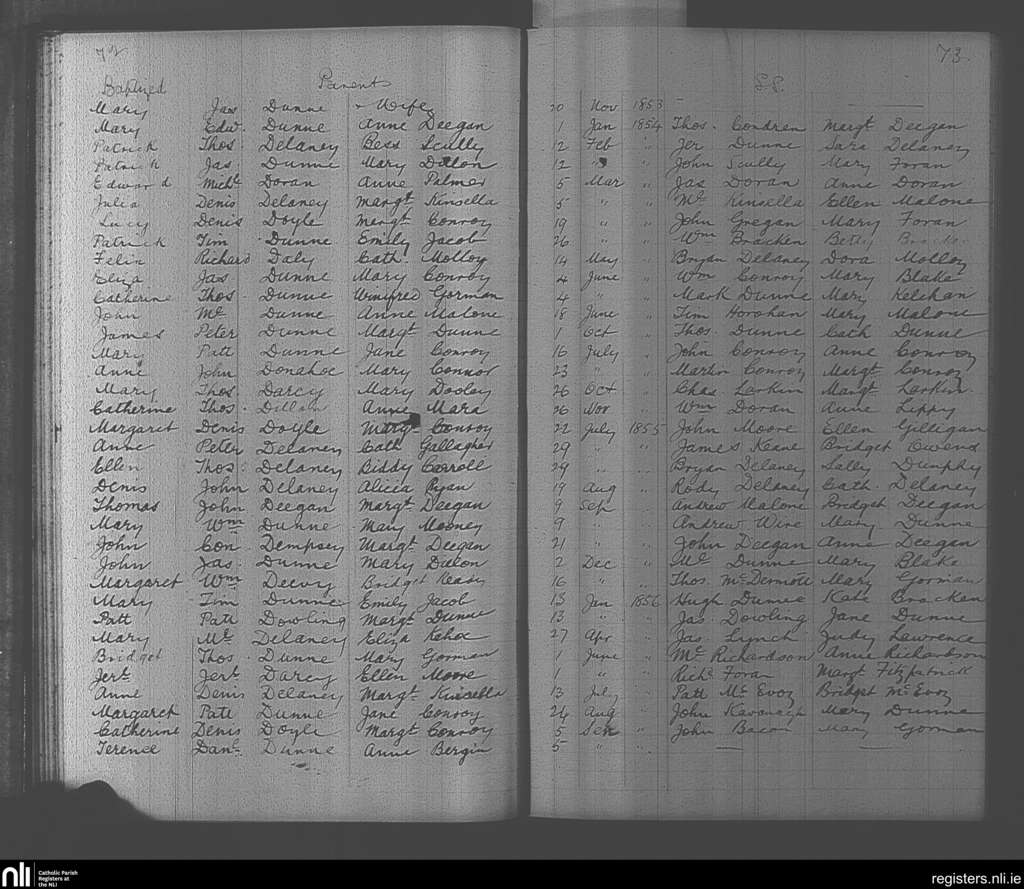 72 73
Baptized Parents S.P.
Mary Jas Dunne & Wife 20 Nov 1853
Mary Edw. Dunne Anne Deegan 1 Jan 1854 Thos. Condren Margt Deegan
Patrick Thos. Delaney Bess Scully 12 Feb " Jer Dunne Sara Delaney
Patrick Jas. Dunne Mary Dillon 12 " " John Scully Mary Foran
Edward Michl. Doran Anne Palmer 5 Mar " Jas Doran Anne Doran
Julia Denis Delaney Margt. Kinsella 5 " " Ml. Kinsella Ellen Malone
Lucy Denis Doyle Margt Conroy 19 " " John Gregan Mary Foran
Patrick Tim Dunne Emily Jacob 26 " " Wm Bracken Betty
Felix Richard Daly Cath Molloy 14 May " Bryan Delaney Dora Molloy
Eliza Jas Dunne Mary Conroy 4 June " Wm Conroy Mary Blake
Catherine Thos. Dunne Winifred Gorman 4 " " Mark Dunne Mary Kelehan
John Ml. Dunne Anne Malone 18 June " Tim Horahan Mary Malone
James Peter Dunne Margt Dunne 1 Oct " Thos. Dunne Cath Dunne
Mary Patt Dunne Jane Conroy 16 July " John Conroy Anne Conroy
Anne John Donahoe Mary Connor 23 " " Martin Conroy Margt. Conroy
Mary Thos. Darcy Mary Dooley 26 Oct " Chas Larkin Margt. Larkin
Catherine Thos. Dillon Anne Mara 26 Nov " Wm Doran Anne Lippy
Margaret Denis Doyle Margt Conroy 22 July 1855 John Moore Ellen Gilligan
Anne Peter Delaney Cath Gallagher 29 " " James Keane Bridget Owens
Ellen Thos. Delaney Biddy Carroll 29 " " Bryan Delaney Sally Dunphy
Denis John Delaney Alicia Ryan 19 Aug " Rody Delaney Cath. Delaney
Thomas John Deegan Margt. Deegan 9 Sep " Andrew Malone Bridget Deegan
Mary Wm Dunne Mary Mooney 9 " " Andrew Wire Mary Dunne
John Con Dempsey Margt. Deegan 21 " " John Deegan Anne Deegan
John Jas. Dunne Mary Dillon 2 Dec " Ml. Dunne Mary Blake
Margaret Wm Deevy Bridget Ready 16 " " Thos. McDermott Mary Gorman
Mary Tim Dunne Emily Jacob 13 Jan 1856 Hugh Dunne Kate Bracken
Patt Patt Dowling Margt Dunne 13 " " Jas. Dowling Jane Dunne
Mary Ml. Delaney Eliza Kehoe 27 Apr " Jas. Lynch Judy Lawrence
Bridget Thos. Dunne Mary Gorman 1 June " Ml. Richardson Anne Richardson
Jerh. Jerh. Darcy Ellen Moore 1 " " Richd. Foran Margt Fitzpatrick
Anne Denis Delaney Margt. Kinsella 13 July " Patt McEvoy Bridget McEvoy
Margaret Patt Dunne Jane Conroy 24 Aug " John Kavanagh Mary Dunne
Catherine Denis Doyle Margt Conroy 5 Sep " John Bacon Mary Gorman
Terence Danl. Dunne Anne Bergin 5 " "
nli Catholic Parish
Registers at
the NLI
registers.nli.ie